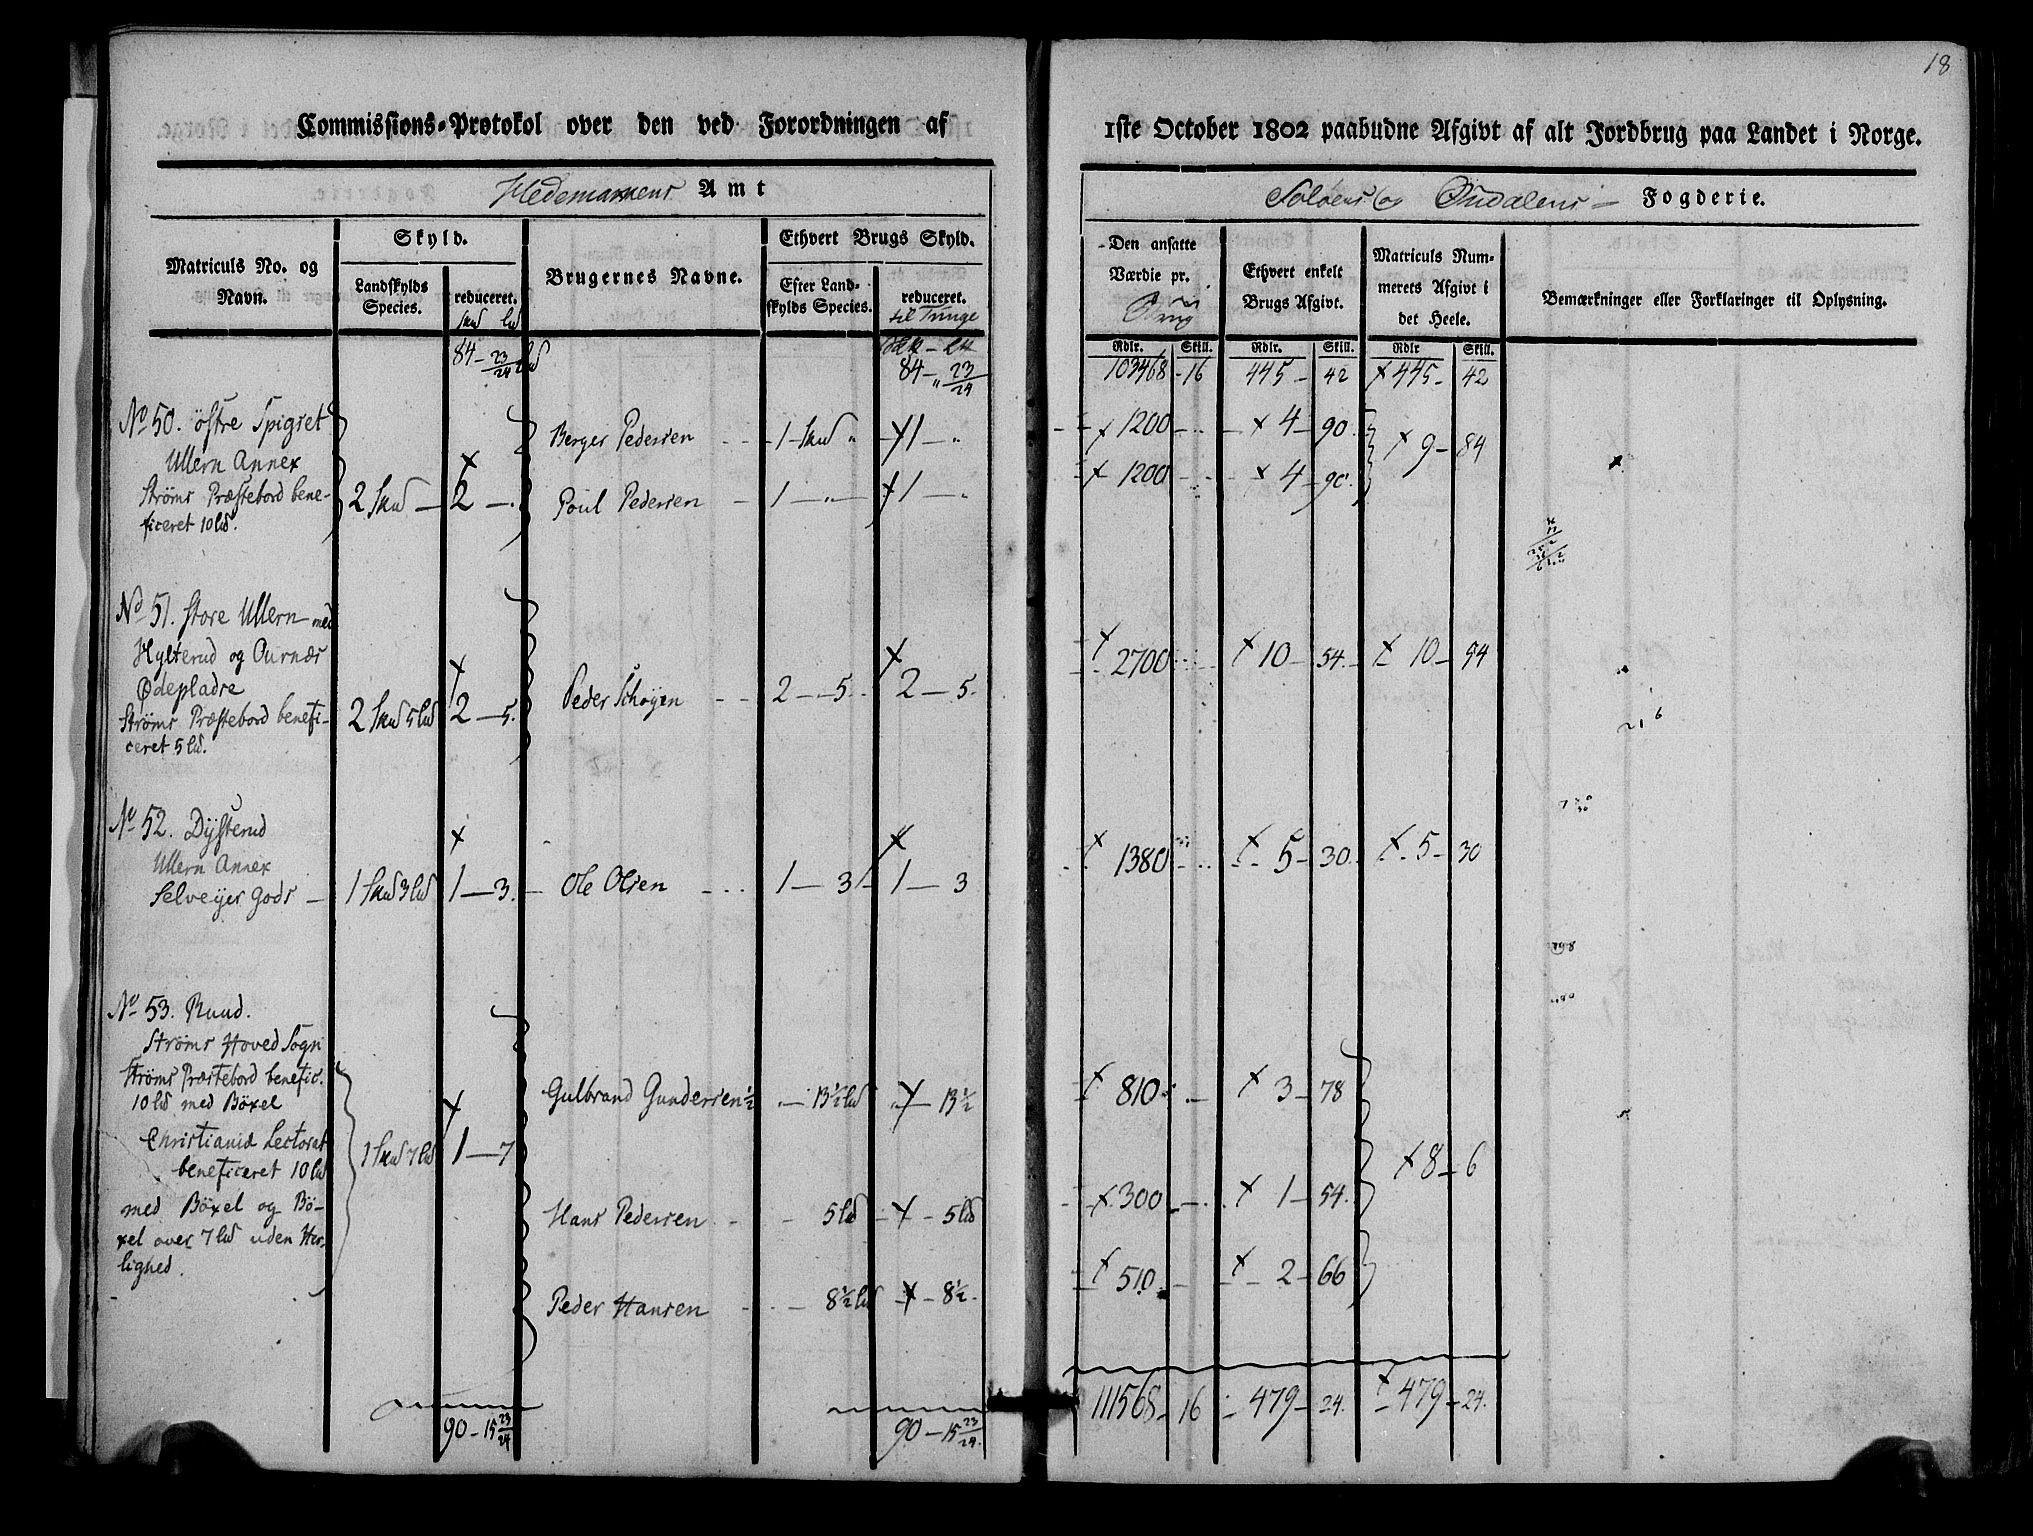 18
Commissions-Protokol over den ved Forordningen af
1ste October 1802 paabudne Afgivt af alt Jordbrug paa Landet i Norge.
Hedemarkens Amt
Soløens og Østdalens Fogderie.
Matriculs No. og Navn.
Skyld.
Landskylds Species.
reduceret.
Skd Ld
Brugernes Navne.
Ethvert Brugs Skyld.
Efter Landskylds Species.
reduceret.
til Tunge
Den ansatte Værdie pr.
Ethvert enkelt Brugs Afgivt.
Matriculs Nummerets Afgivt i det Heele.
Bemærkninger eller Forklaringer til Oplysning.
Rdlr. Skill. Rdlr. Skill. Rdlr Skill.
84 - 23/24 Ld 84 - " 23/24 103468 - 16 445 - 42 445 - 42
No 50. østre Spigset
Ullern Annex
Strøms Præstebord bene-
ficeret 10 Ld.
2 Skd 2 -
Berger Pedersen 1 Skd " 1 - " 1200 4 - 90 9 - 84
Poul Pedersen 1 - " 1 - " 1200 4 - 90.
No 51. Store Ullern med
Hylterud og Ournæs
Ødepladse
Strøms Præstebord benefi-
ceret 5 Ld.
2 Skd 5 Ld 2 - 5. Peder Schøyen 2 - 5. 2 - 5. 2700 10 - 54 10 - 54
No 52. Dysterud
Ullern Annex
Selveyer Gods - 1 Skd 3 Ld 1 - 3. Ole Olsen 1 - 3 1 - 3 1380 5 - 30. 5 - 30
No 53. Ruud.
Strøms Hoved Sogn
Strøms Præstebord benefic.
10 Ld med Böxel
Christianid Lectorat
beneficeret 10 Ld
med Böxel og Bö-
xel over 7 Ld uden Her-
lighed.
1 Skd 7 Ld 1 - 7
Gulbrand Gundersen 13½ Ld 13½ 810 3 - 78
8 - 6
Hans Pedersen 5 Ld 5 Ld 300 1 - 54.
Peder Hansen 8½ Ld 8½. 510 2 - 66
90 - 15 23/24 90 - 15 23/24. 111568 - 16 479 - 24. 479 - 24.